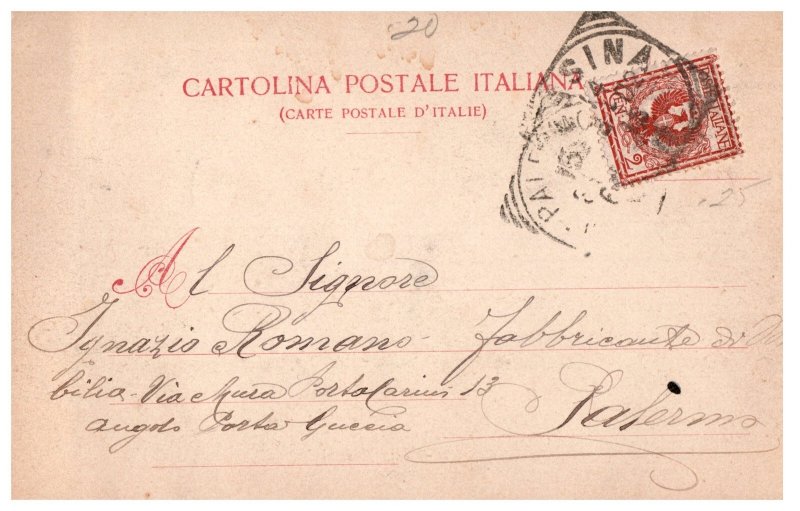 20
CARTOLINA POSTALE ITALIANA
(CARTE POSTALE D'ITALIE)
SINA
PAL
2
.25
Al Signore
Ignazio Romano - fabbricante di Mo
bilia - Via Mura Porta Carini 13
angolo Porta Guccia
Palermo